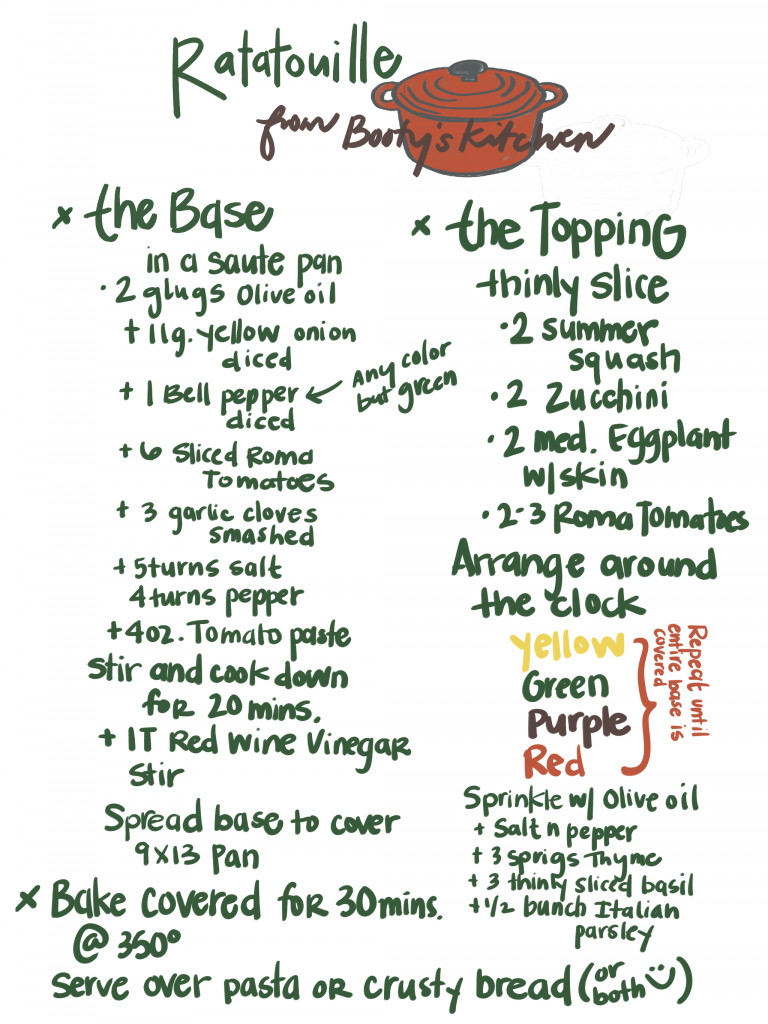 Ratatouille
from Booty's Kitchen
x the Base
in a saute pan
· 2 glugs Olive oil
+ 1 lg. yellow onion
diced
+ 1 Bell pepper
diced
Any color
but green
+ 6 Sliced Roma
Tomatoes
+ 3 garlic cloves
smashed
+ 5 turns salt
4 turns pepper
+ 4 oz. Tomato paste
Stir and cook down
for 20 mins.
+ 1T Red Wine Vinegar
Stir
Spread base to cover
9x13 Pan
x the Topping
thinly slice
· 2 summer
squash
· 2 Zucchini
· 2 med. Eggplant
w/skin
· 2-3 Roma Tomatoes
Arrange around
the clock
Yellow
Green
Purple
Red
Repeat until
entire base is
covered
Sprinkle w/ Olive oil
+ Salt n pepper
+ 3 sprigs Thyme
+ 3 thinly sliced basil
+ 1/2 bunch Italian
parsley
x Bake covered for 30 mins.
@ 350°
Serve over pasta or crusty bread (or
both)